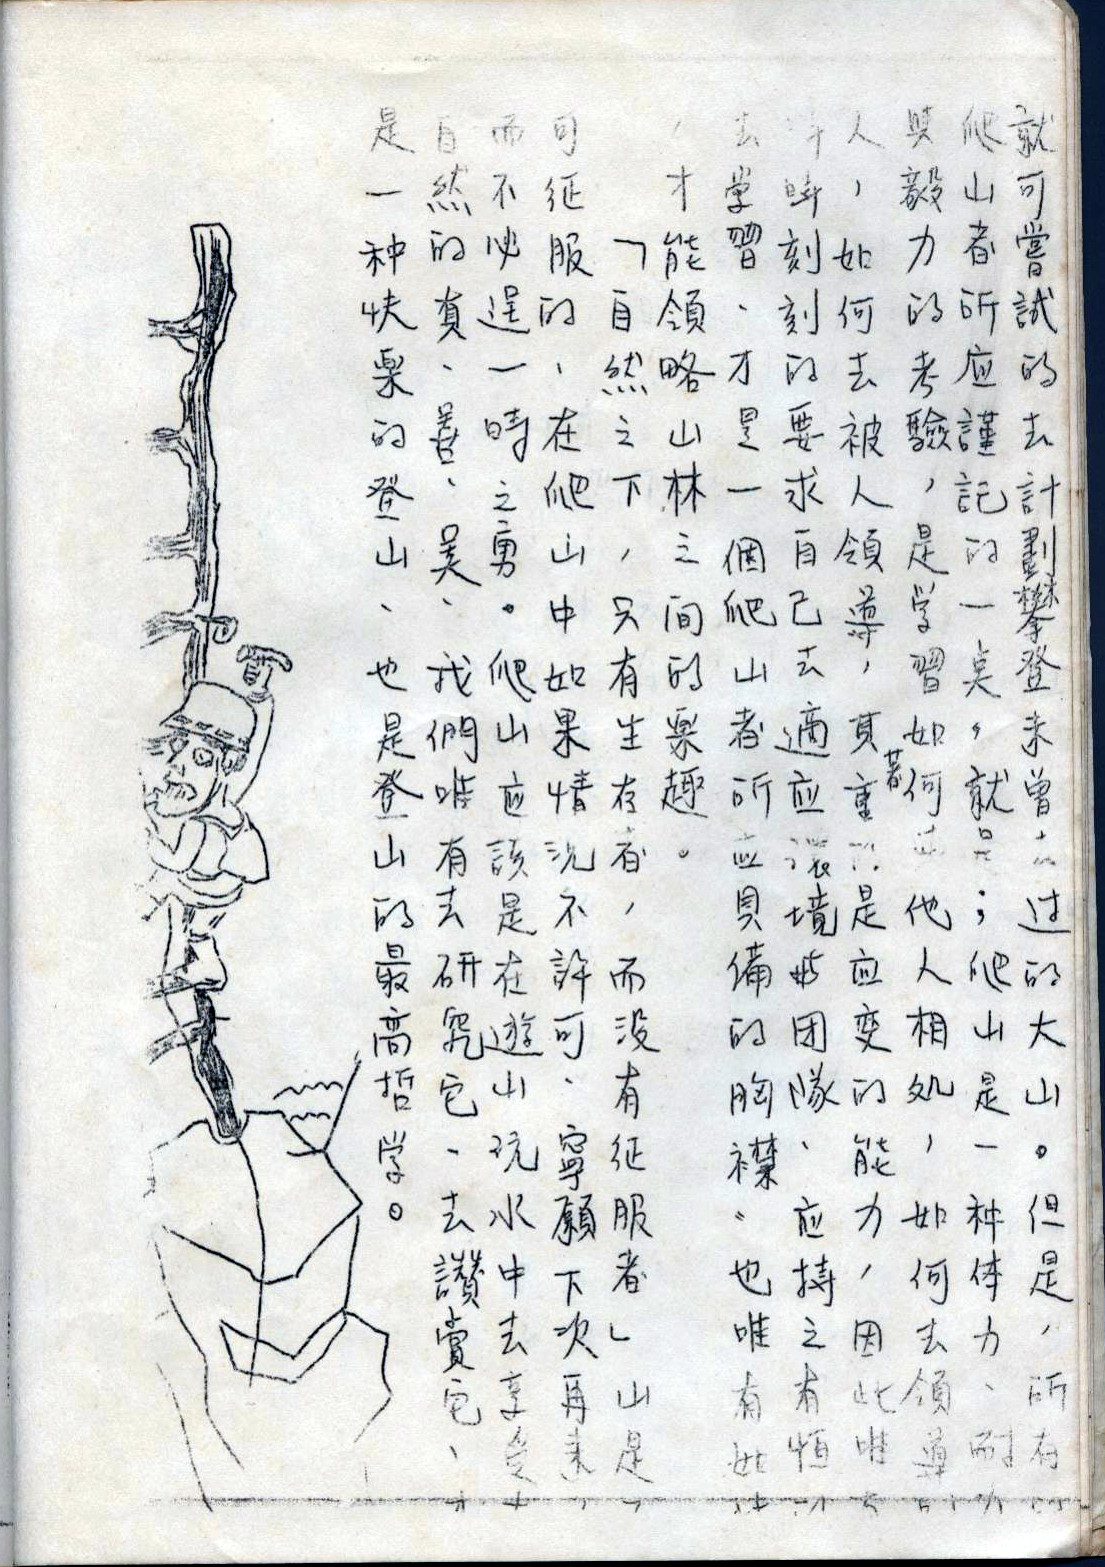 就可嘗試的去計劃攀登未曾去过的大山。但是，所有
爬山者所应謹記的一奌，就是；爬山是一种体力、耐
與毅力的考驗，是学習如何与他人相処，如何去領導
人，如何去被人領導，其著重的是应变的能力，因此唯
時刻刻的要求自己去適应环境與团隊、应持之有恒
去學習、才是一個爬山者所应具備的胸襟、也唯有如
，才能領略山林之间的楽趣。
「自然之下，只有生存者，而没有征服者」山是
可征服的、在爬山中如果情況不許可、寧願下次再来
而不必逞一時之勇。爬山应該是在遊山玩水中去享受
自然的真、善、美、我們唯有去研究它、去讚賞它、
是一种快楽的登山、也是登山的最高哲学。